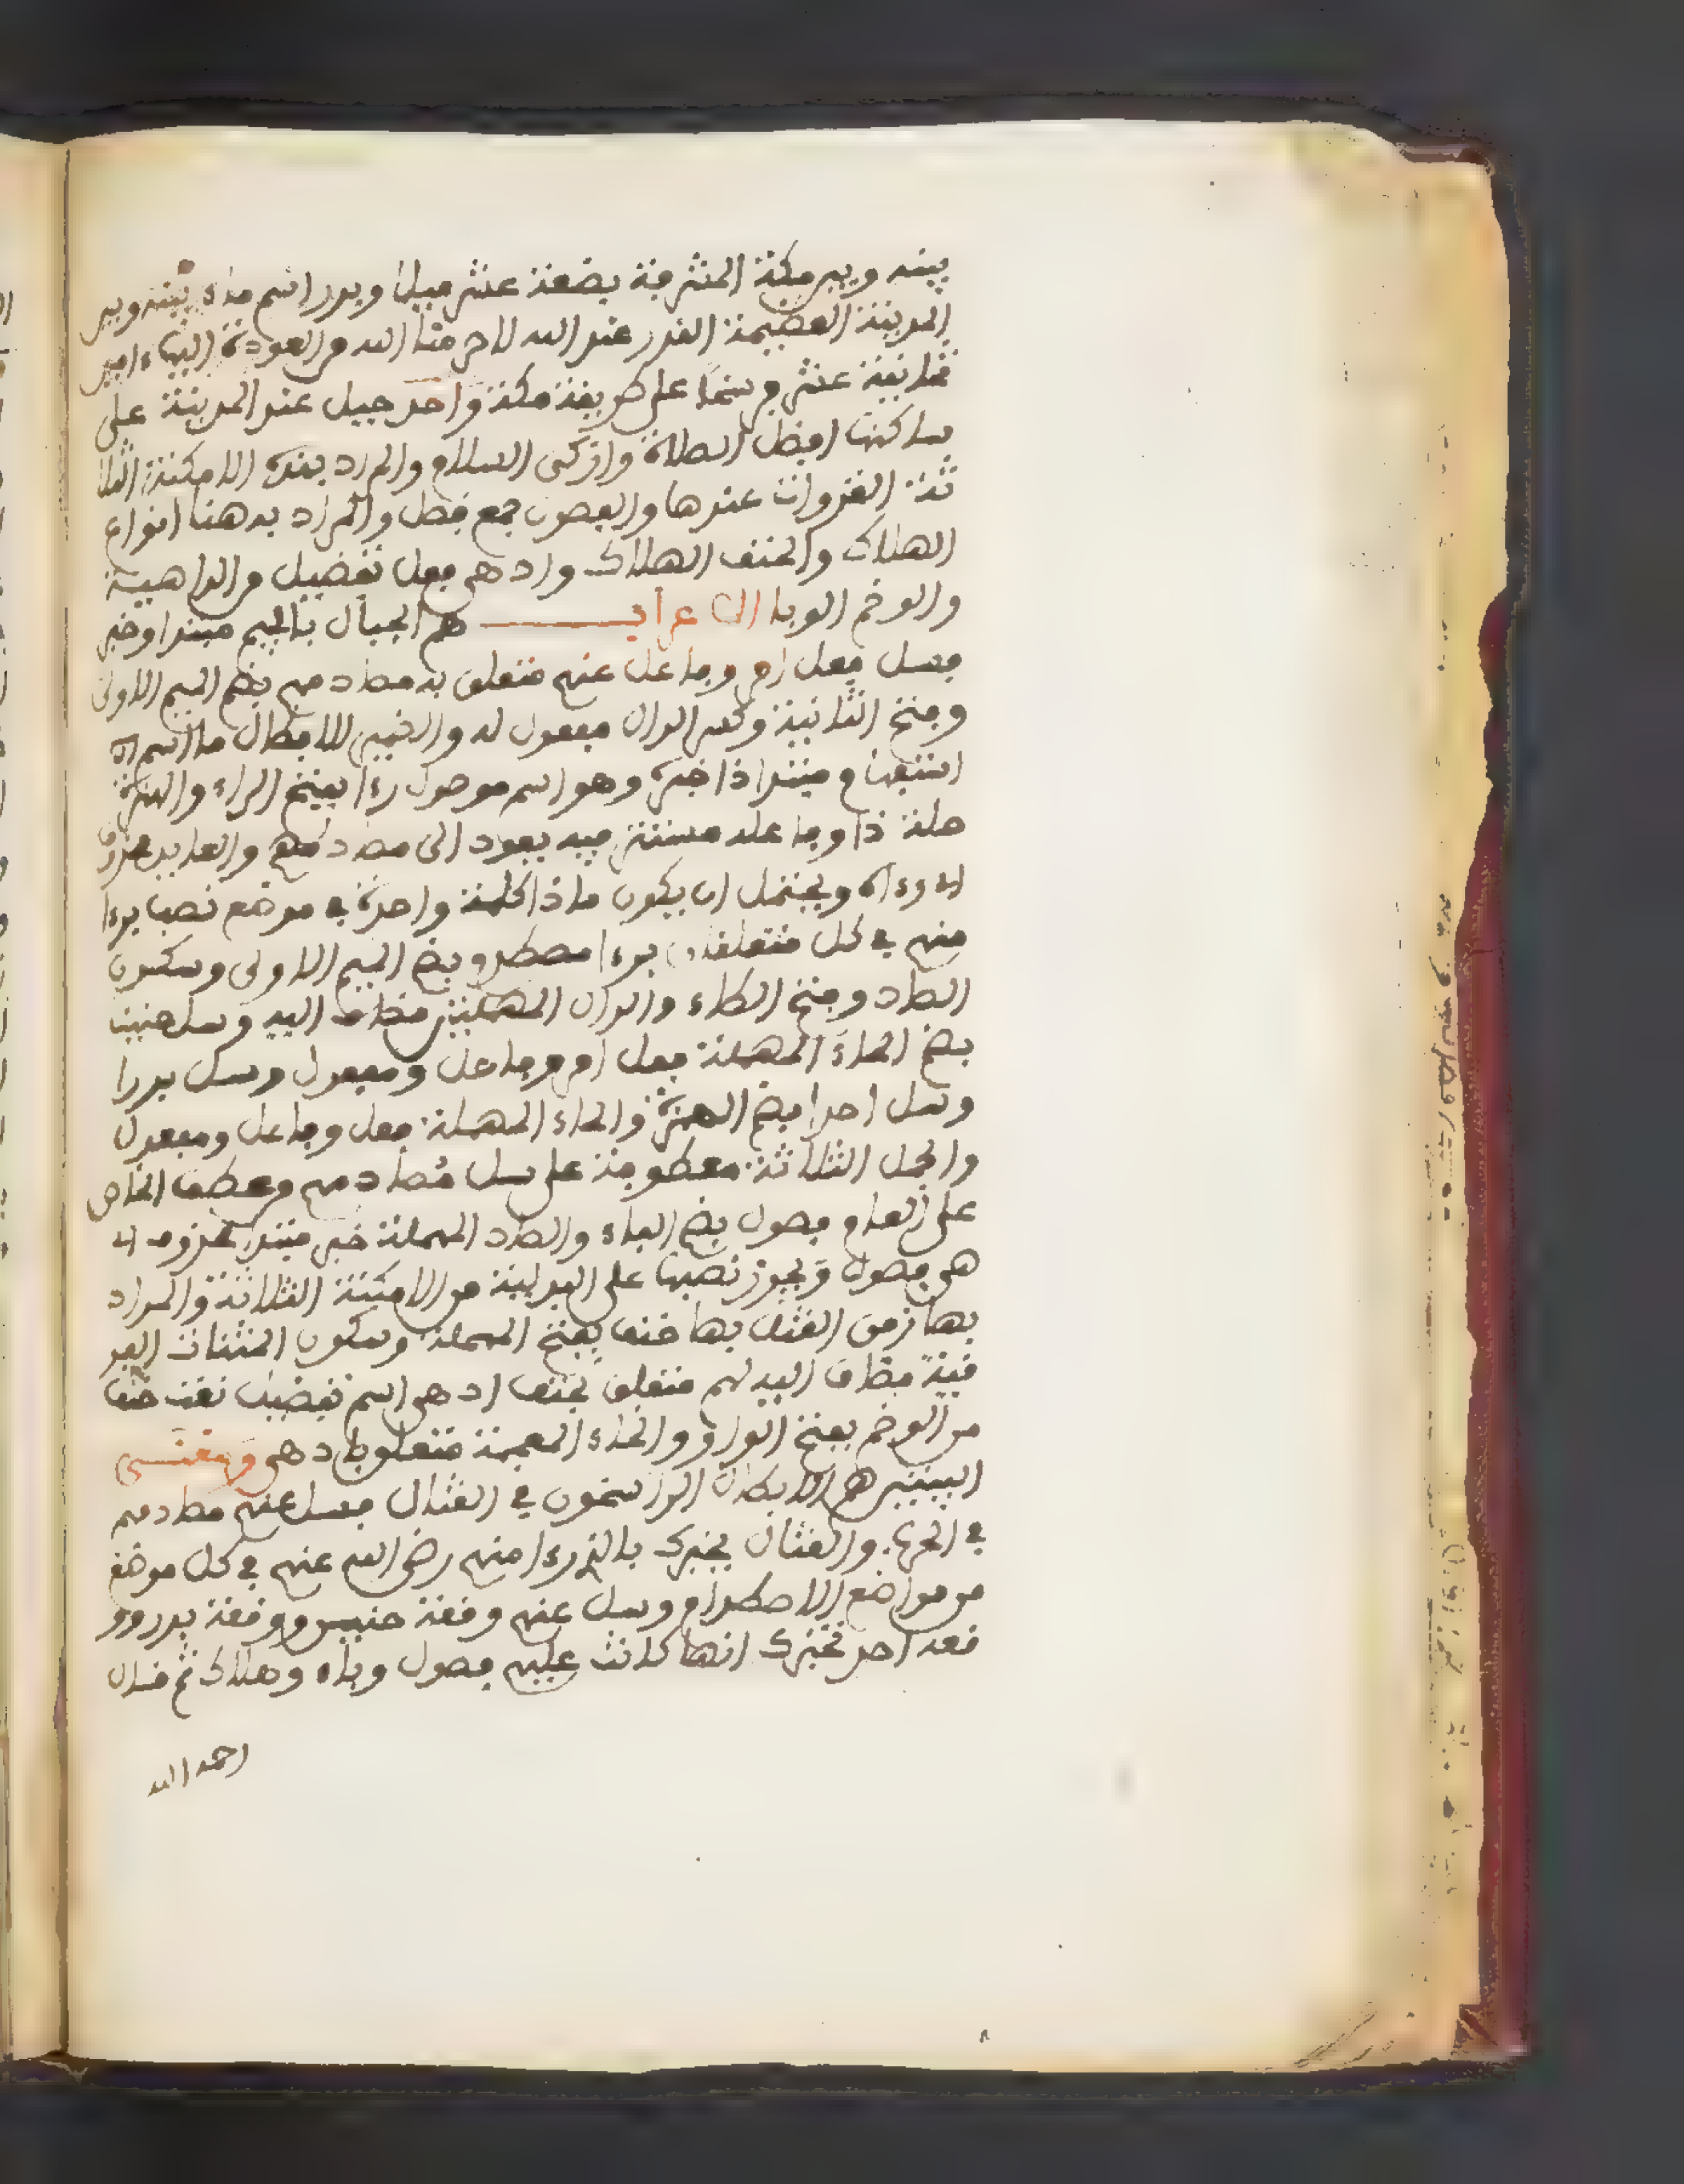 بينه وبين مكة المشرفة بضعة عشر ميلا وبدر اسم ماء بينه وبين
المدينة العظيمة القدر عند الله لاحرمنا الله من العودة إليها امين
ثمانية عشر فرسخا على طريقة مكة واحد جبيل عند المدينة على
ساكنها افضل الصلاة وازكى السلام والمراد بهذه الامكنة الثلا
ثة الغزوات عندها والفصول جمع فصل والمراد به هنا انواع
الهلاك والحتف الهلاك وادهى فعل تفضيل من الداهية
والوخم الوبا الاعراب هم الجبال بالجيم مبتدا وخبر
فسل فعل امر وفاعل عنهم متعلق به مصادمهم بضم الميم الاولى
وفتح الثانية وكسر الدال مفعول له والضمير للابطال ما اسم
استفهام مبتدا ذا خبره وهو اسم موصول رءا بفتح الراء والهمزة
صلة ذا وفاعله مستتر فيه يعود الى مصادمهم والعايد محذوف
اي رءاه ويحتمل ان يكون ماذا كلمة واحدة في موضع نصب برءا
منهم في كل متعلقان برءا مصطدم بضم الميم الاولى وسكون
الصاد وفتح الطاء والدال المهملتين مضاف اليه وسل حنينا
بضم الحاء المهملة فعل امر وفاعل ومفعول وسل بدرا
وسل احدا بضم الهمزة والحاء المهملة فعل وفاعل ومفعول
والجمل الثلاثة معطوفة على سل مصادمهم وعطف الخاص
على العام فصول بضم الفاء والصاد المهملة خبر مبتدا محذوف اي
هي فصول ويجوز نصبها على البدلية من الامكنة الثلاثة والمراد
بها زمن القتال بها حتف بفتح المهملة وسكون المثناة الفو
قية مضاف اليه لهم متعلق بحتف ادهى اسم تفضيل نعت حتف
من الوخم بفتح الواو والخاء المعجمة متعلق بادهى ومعنى
البيتين هم الابطال الراسخون في القتال فسل عنهم مصادمهم
في الحرب والقتال يخبرك بالذي رءا منهم رضي الله عنهم في كل موضع
من مواضع الاصطدام وسل عنهم وقعة حنين ووقعة بدر وو
قعة احد تخبرك انها كانت عليهم فصول وباء وهلاك ثم قال
رحمه الله